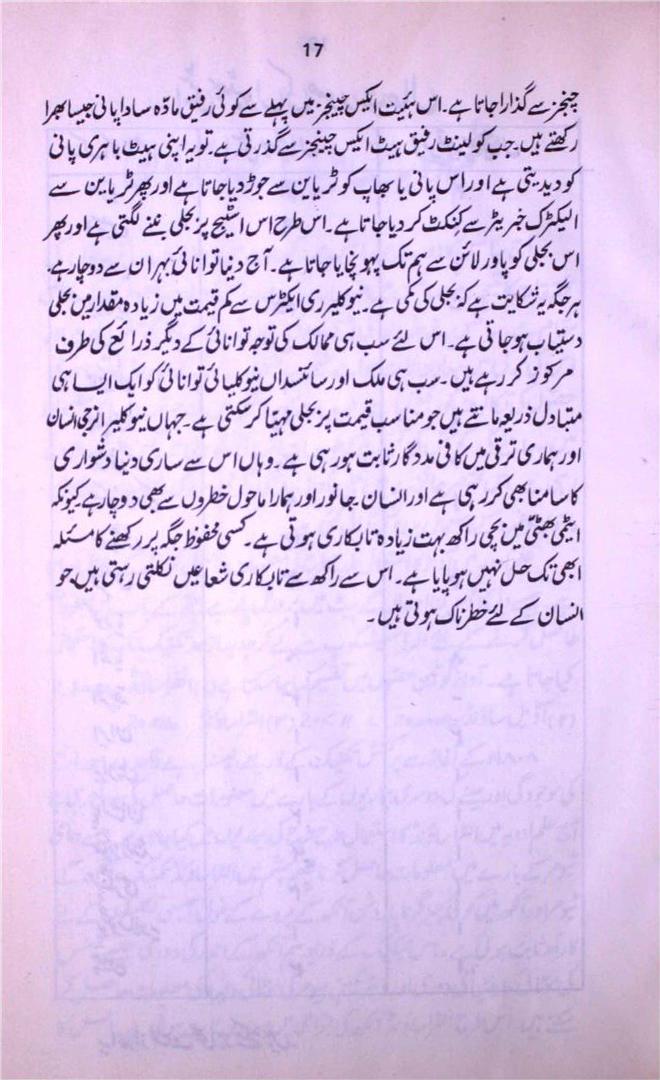 17
چینجز سے گذارا جاتا ہے۔ اس ہئیت ایکس چینجز میں پہلے سے کوئی رفیق مادّہ سادا پانی جیسا بھرا
رکھتے ہیں۔ جب کولینٹ رفیق ہیٹ ایکس چینجز سے گذرتی ہے۔ تو یہ اپنی ہیٹ باہری پانی
کو دیدیتی ہے اور اس پانی یا بھاپ کو ٹربائن سے جوڑ دیا جاتا ہے اور پھر ٹربائن سے
الیکٹرک جنریٹر سے کنکٹ کر دیا جاتا ہے۔ اس طرح اس اسٹیج پر بجلی بننے لگتی ہے اور پھر
اس بجلی کو پاور لائن سے ہم تک پہونچایا جاتا ہے۔ آج دنیا توانائی بہران سے دوچار ہے۔
ہر جگہ یہ شکایت ہے کہ بجلی کی کمی ہے۔ نیوکلیرری ایکٹرس سے کم قیمت میں زیادہ مقدار میں بجلی
دستیاب ہو جاتی ہے۔ اس لئے سب ہی ممالک کی توجہ توانائی کے دیگر ذرائع کی طرف
مرکوز کر رہے ہیں۔ سب ہی ملک اور سائنسداں نیوکلیائی توانائی کو ایک ایسا ہی
متبادل ذریعہ مانتے ہیں جو مناسب قیمت پر بجلی مہیّا کر سکتی ہے۔ جہاں نیوکلیر انرجی انسان
اور ہماری ترقی میں کافی مددگار ثابت ہو رہی ہے۔ وہاں اس سے ساری دنیا دشواری
کا سامنا بھی کر رہی ہے اور انسان جانور اور ہمارا ماحول خطروں سے بھی دوچار ہے کیونکہ
ایٹمی بھٹّی میں بچی راکھ بہت زیادہ تابکاری ہوتی ہے۔ کسی محفوظ جگہ پر رکھنے کا مسئلہ
ابھی تک حل نہیں ہو پایا ہے۔ اس سے راکھ سے تابکاری شعاعیں نکلتی رہتی ہیں۔ جو
انسان کے لئے خطرناک ہوتی ہیں۔